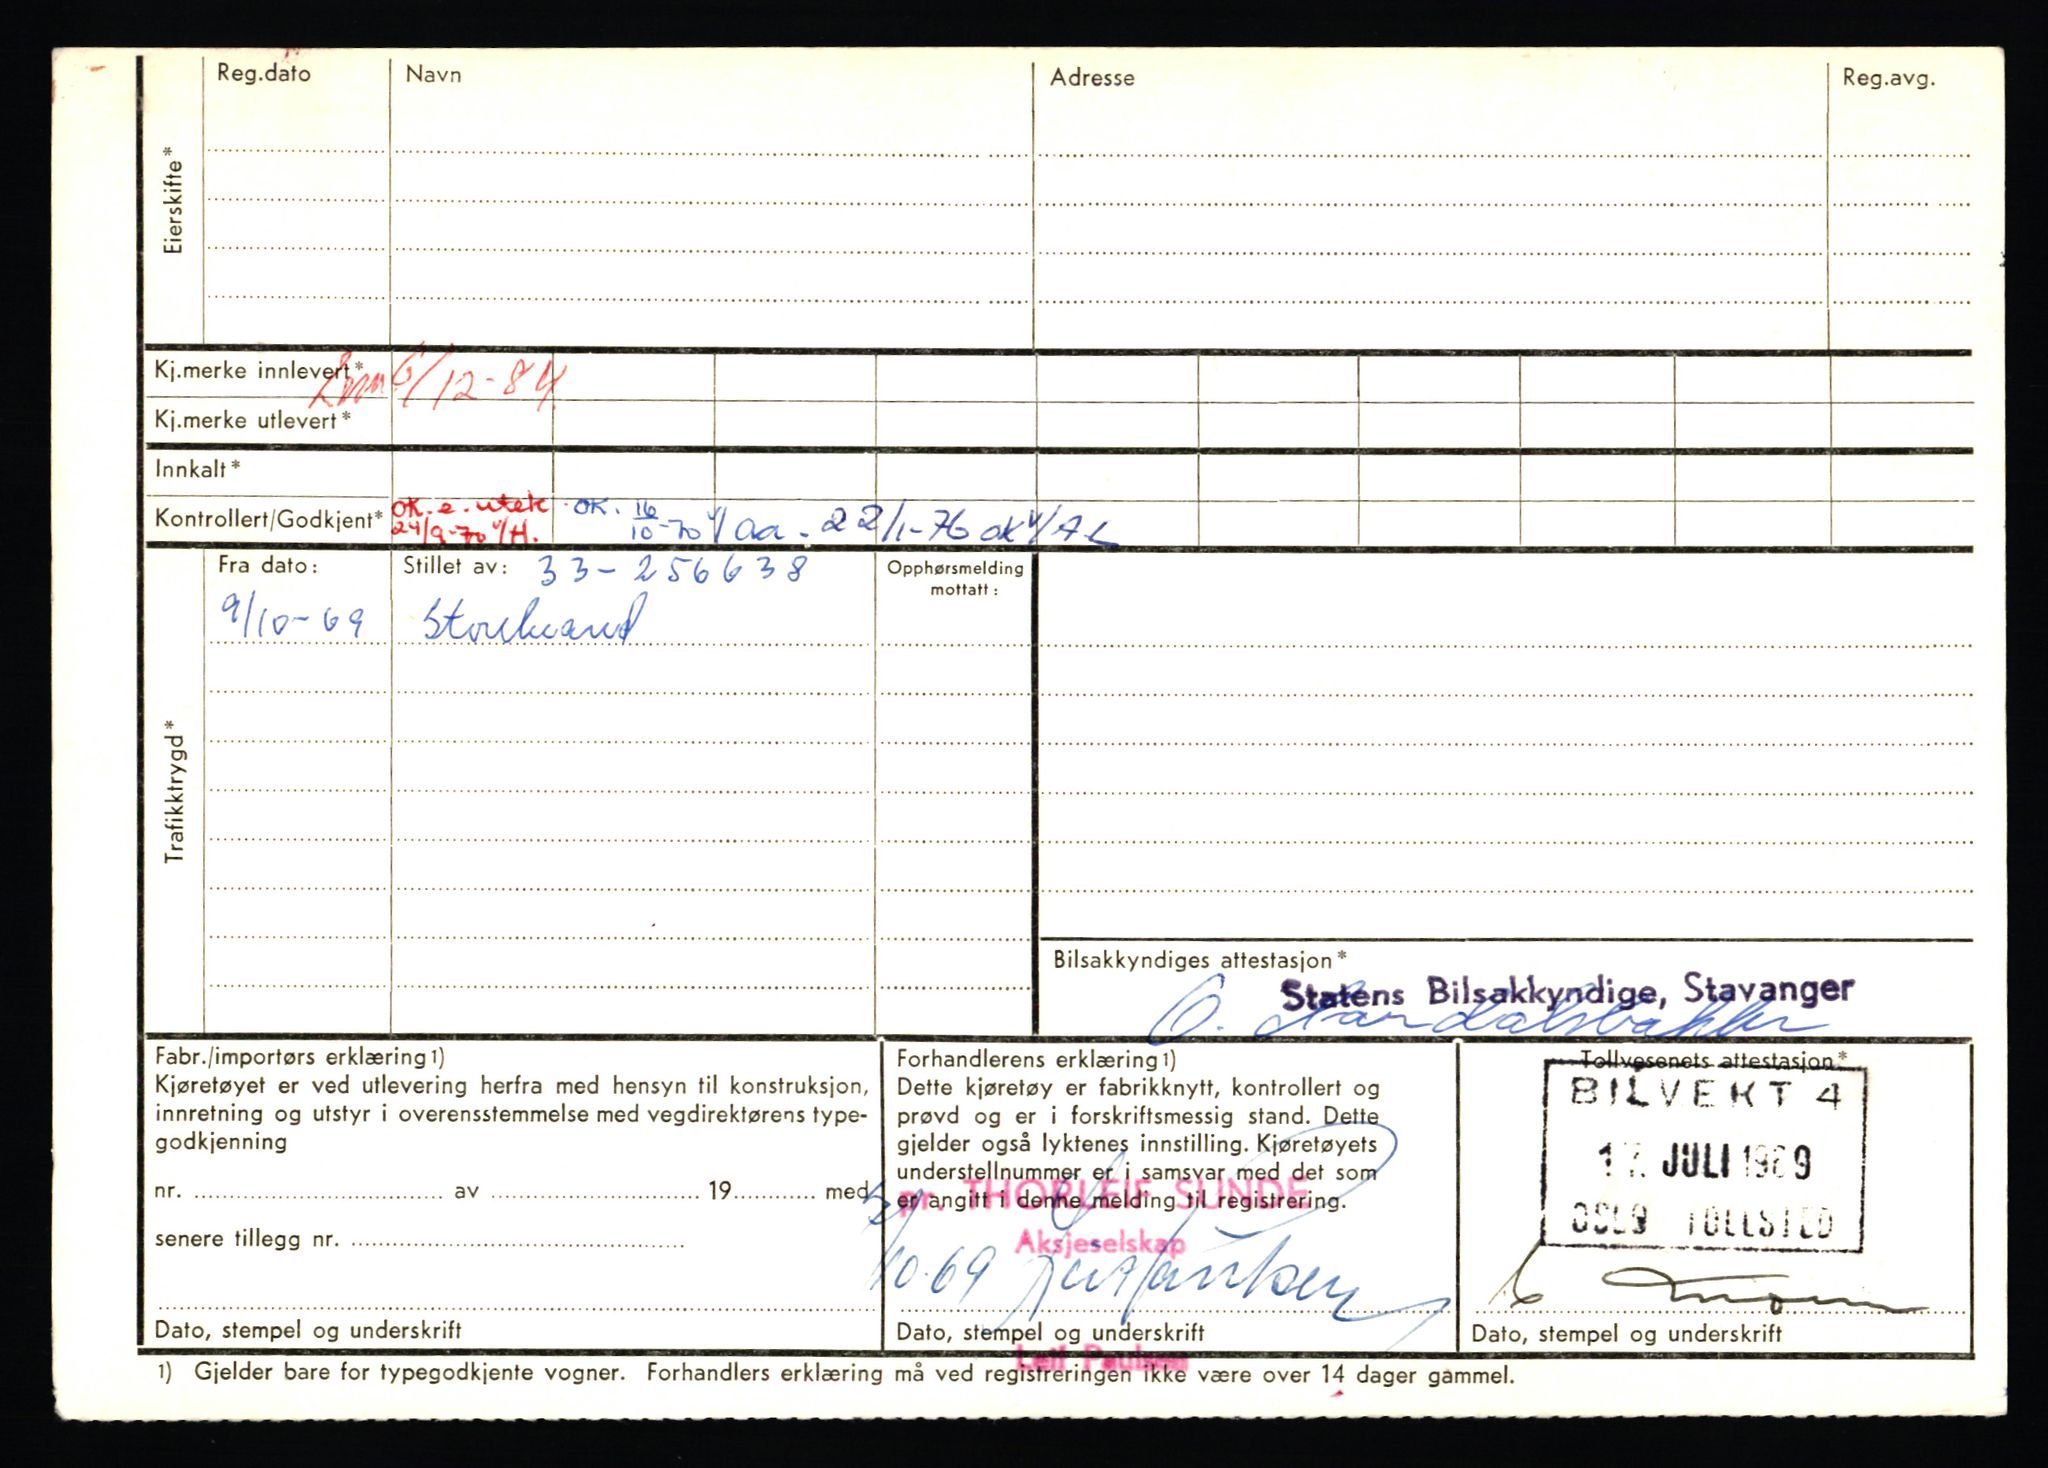 Reg.dato Navn Adresse Reg.avg.
Eierskifte*
Kj.merke innlevert* 6/12-84
Kj.merke utlevert*
Innkalt*
Kontrollert/Godkjent* OK. e. utek 24/9-70 v/H. OK. 16/10-70 v/ Aa. 22/1-76 OK v/AL
Fra dato: Stillet av: 33-256638 Opphørsmelding
mottatt:
9/10-69 Storebrand
Trafikktrygd*
Bilsakkyndiges attestasjon*
Statens Bilsakkyndige, Stavanger
Fabr./importørs erklæring1)
Kjøretøyet er ved utlevering herfra med hensyn til konstruksjon,
innretning og utstyr i overensstemmelse med vegdirektørens type-
godkjenning
nr. av 19 med
senere tillegg nr.
Dato, stempel og underskrift
Forhandlerens erklæring1)
Dette kjøretøy er fabrikknytt, kontrollert og
prøvd og er i forskriftsmessig stand. Dette
gjelder også lyktenes innstilling. Kjøretøyets
understellnummer er i samsvar med det som
er angitt i denne melding til registrering.
pr. THORLEIF SUNDE
Aksjeselskap
10.69 Leif Paulsen
Dato, stempel og underskrift
Leif Paulsen
Tollvesenets attestasjon*
BILVEKT 4
JULI 1969
OSLO TOLLSTED
Dato, stempel og underskrift
1) Gjelder bare for typegodkjente vogner. Forhandlers erklæring må ved registreringen ikke være over 14 dager gammel.